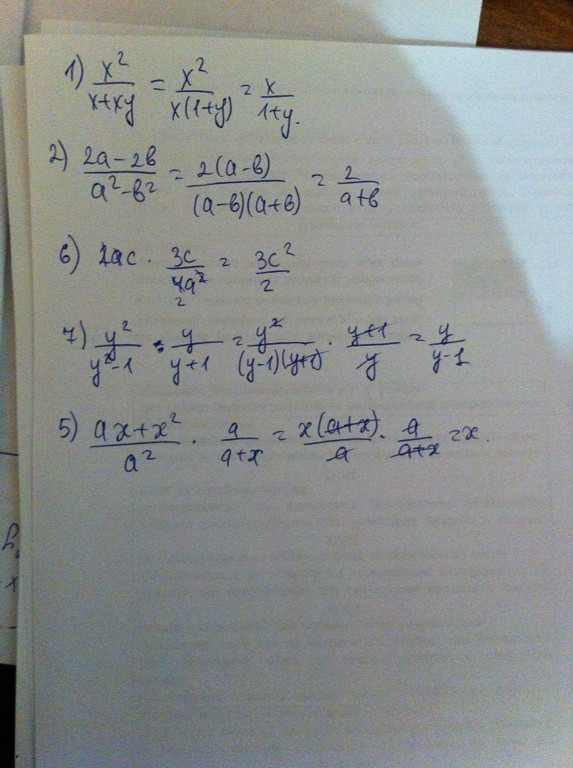 1) x²/(x+xy) = x²/(x(1+y)) = x/(1+y).
2) (2a-2b)/(a²-b²) = 2(a-b)/((a-b)(a+b)) = 2/(a+b)
6) 2ac · 3c/(4a²) = 3c²/2
7) y²/(y²-1) : y/(y+1) = y²/((y-1)(y+1)) · (y+1)/y = y/(y-1)
5) (ax+x²)/a² · a/(a+x) = x(a+x)/a · a/(a+x) = x.